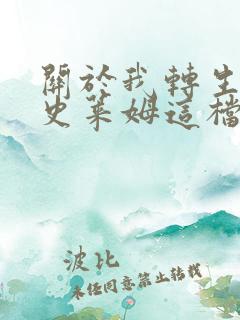 關於我轉生
史萊姆這檔
波比
未經同意禁止轉載